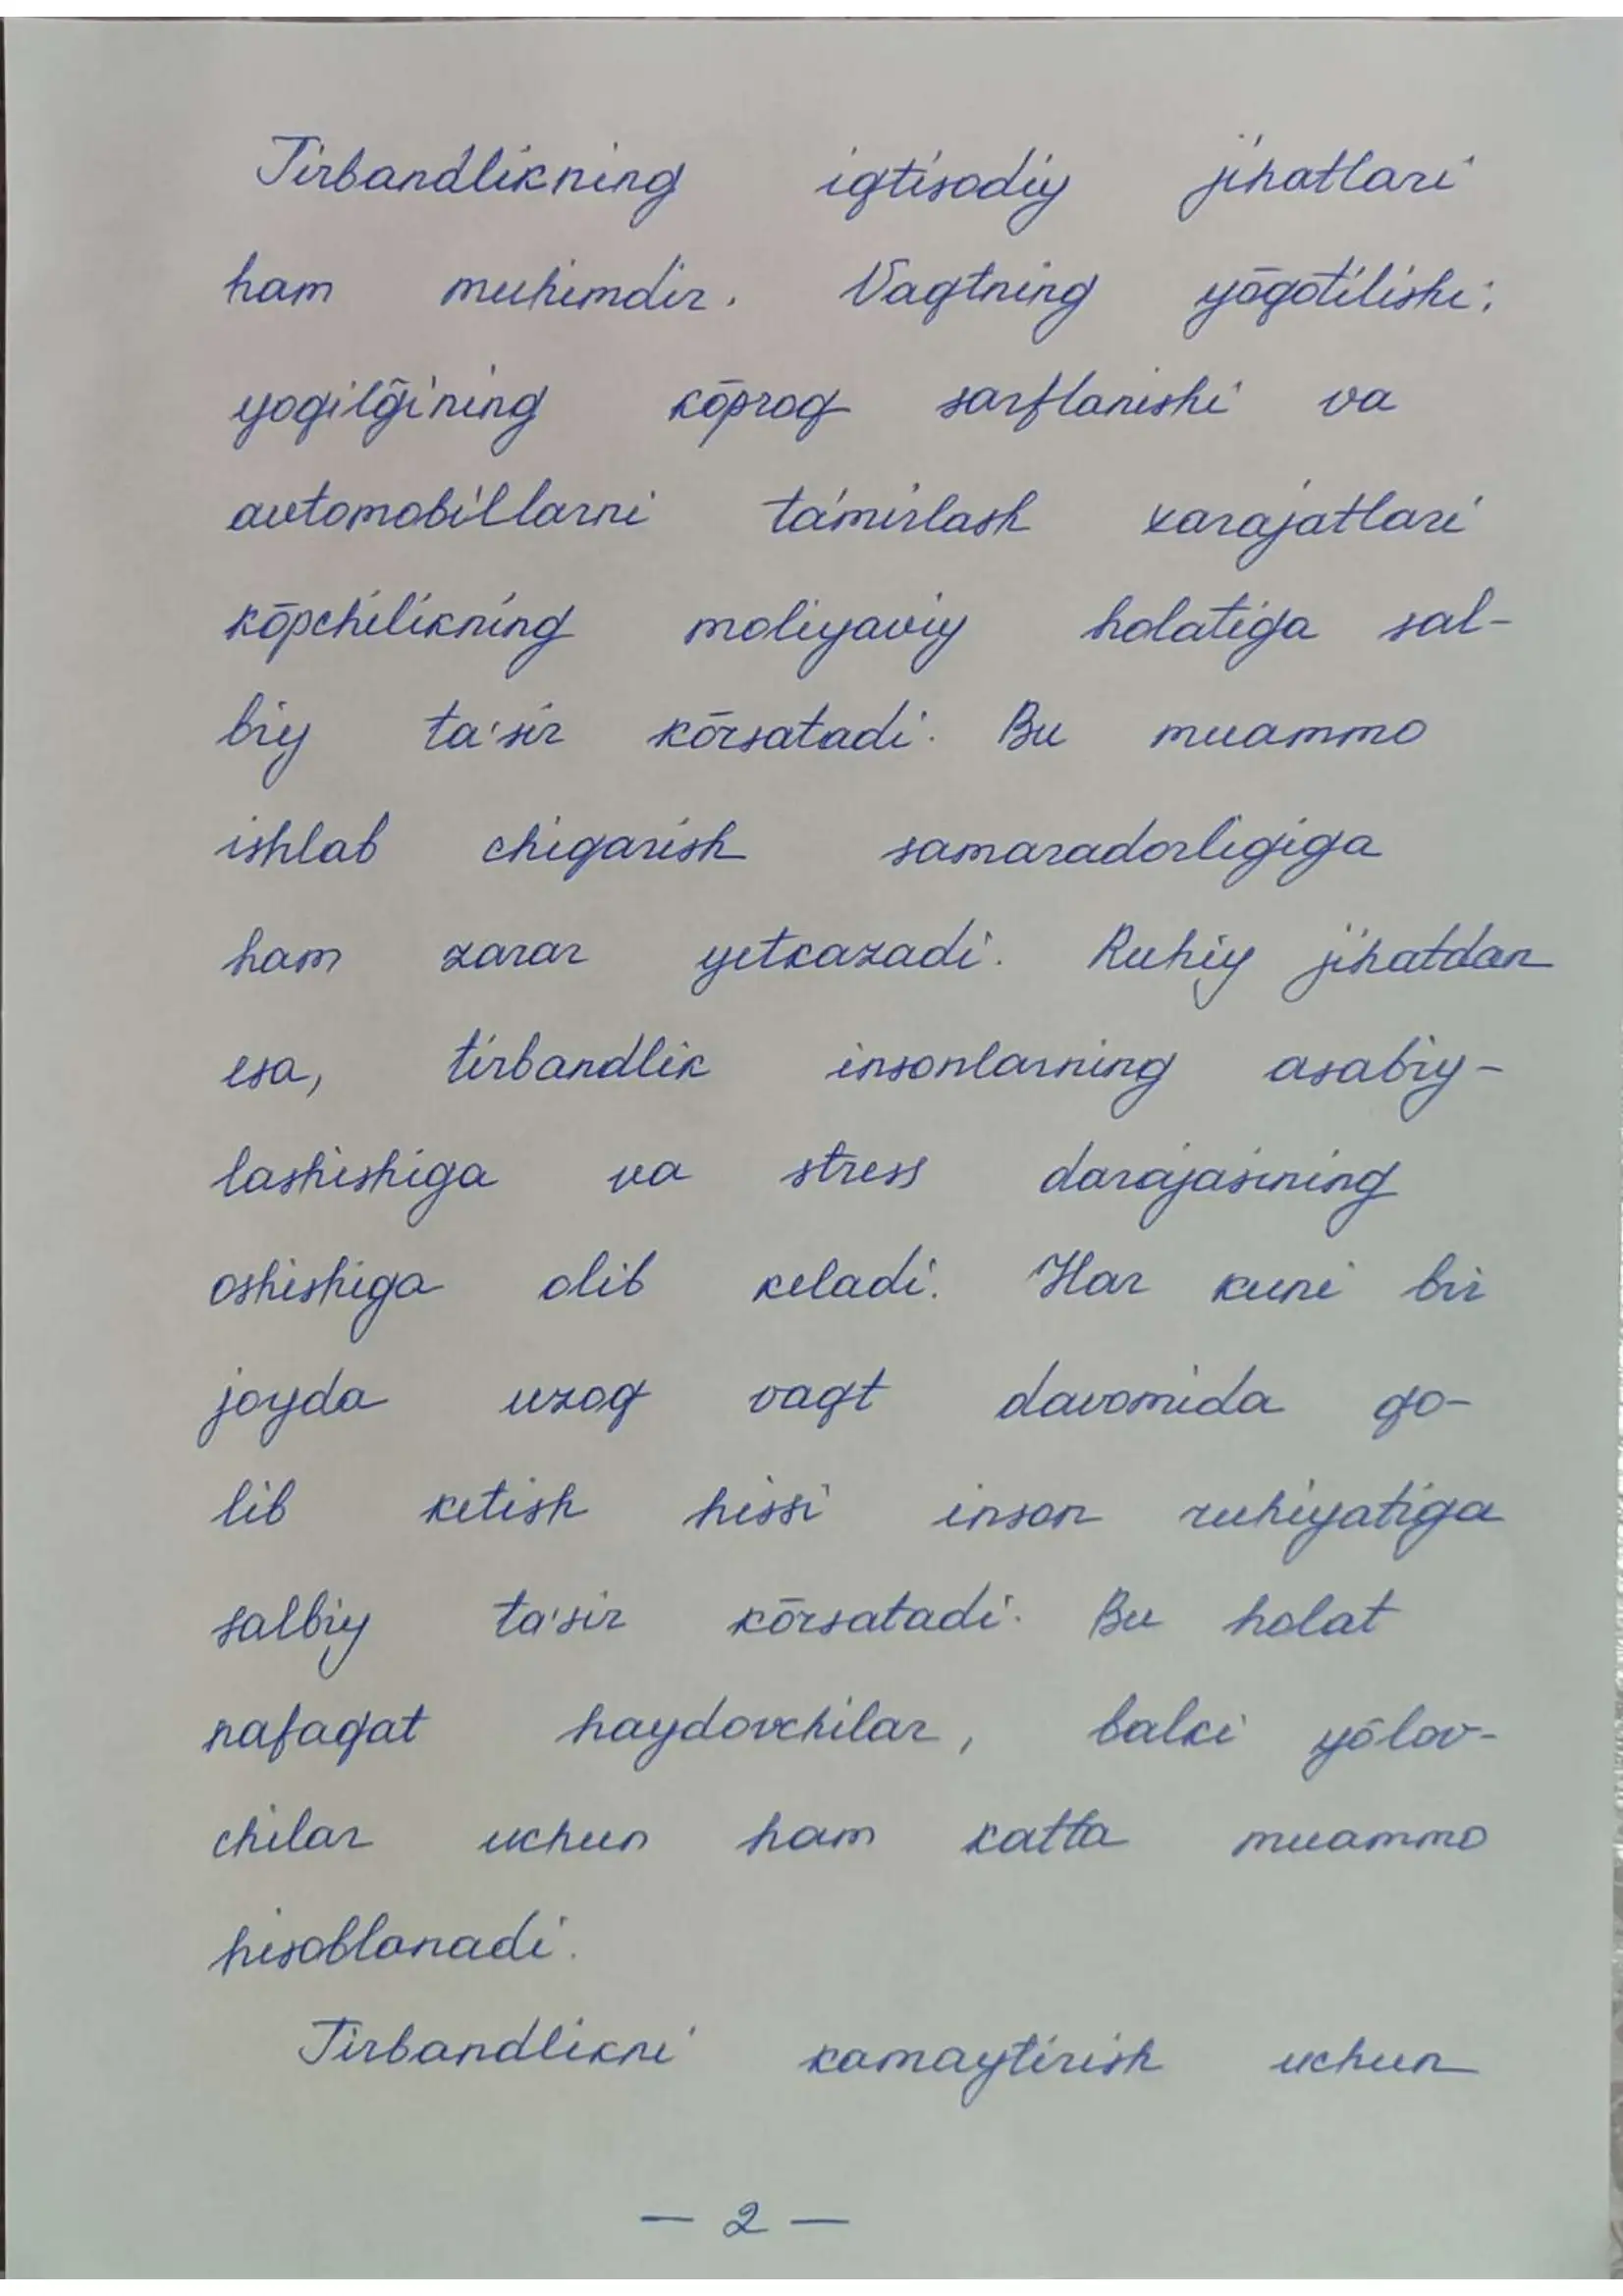 Tirbandlikning iqtisodiy jihatlari
ham muhimdir. Vaqtning yōqotilishi,
yoqilḡining kōproq sarflanishi va
avtomobillarni ta'mirlash xarajatlari
kōpchilikning moliyaviy holatiga sal-
biy ta'sir kōrsatadi. Bu muammo
ishlab chiqarish samaradorligiga
ham zarar yetkazadi. Ruhiy jihatdan
esa, tirbandlik insonlarning asabiy-
lashishiga va stress darajasining
oshishiga olib keladi. Har kuni bir
joyda uzoq vaqt davomida qo-
lib ketish hissi inson ruhiyatiga
salbiy ta'sir kōrsatadi. Bu holat
nafaqat haydovchilar, balki yōlov-
chilar uchun ham katta muammo
hisoblanadi.
Tirbandlikni kamaytirish uchun
— 2 —